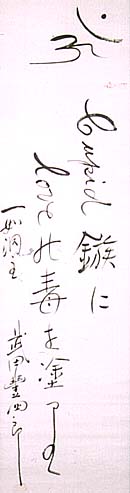 Cupid 鏃に
loveの毒を塗
一如洞主
武田豊四郎